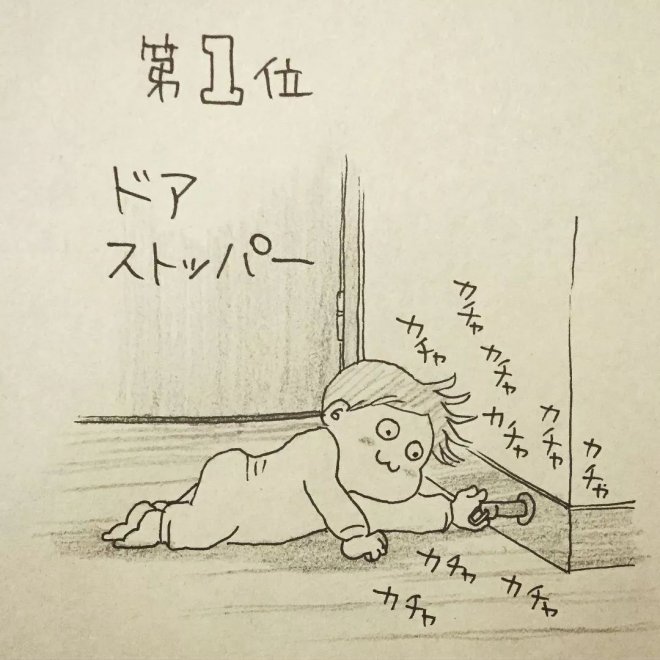 第1位
ドア
ストッパー
カチャ
カチャ
カチャ
カチャ
カチャ
カチャ
カチャ
カチャ
カチャ